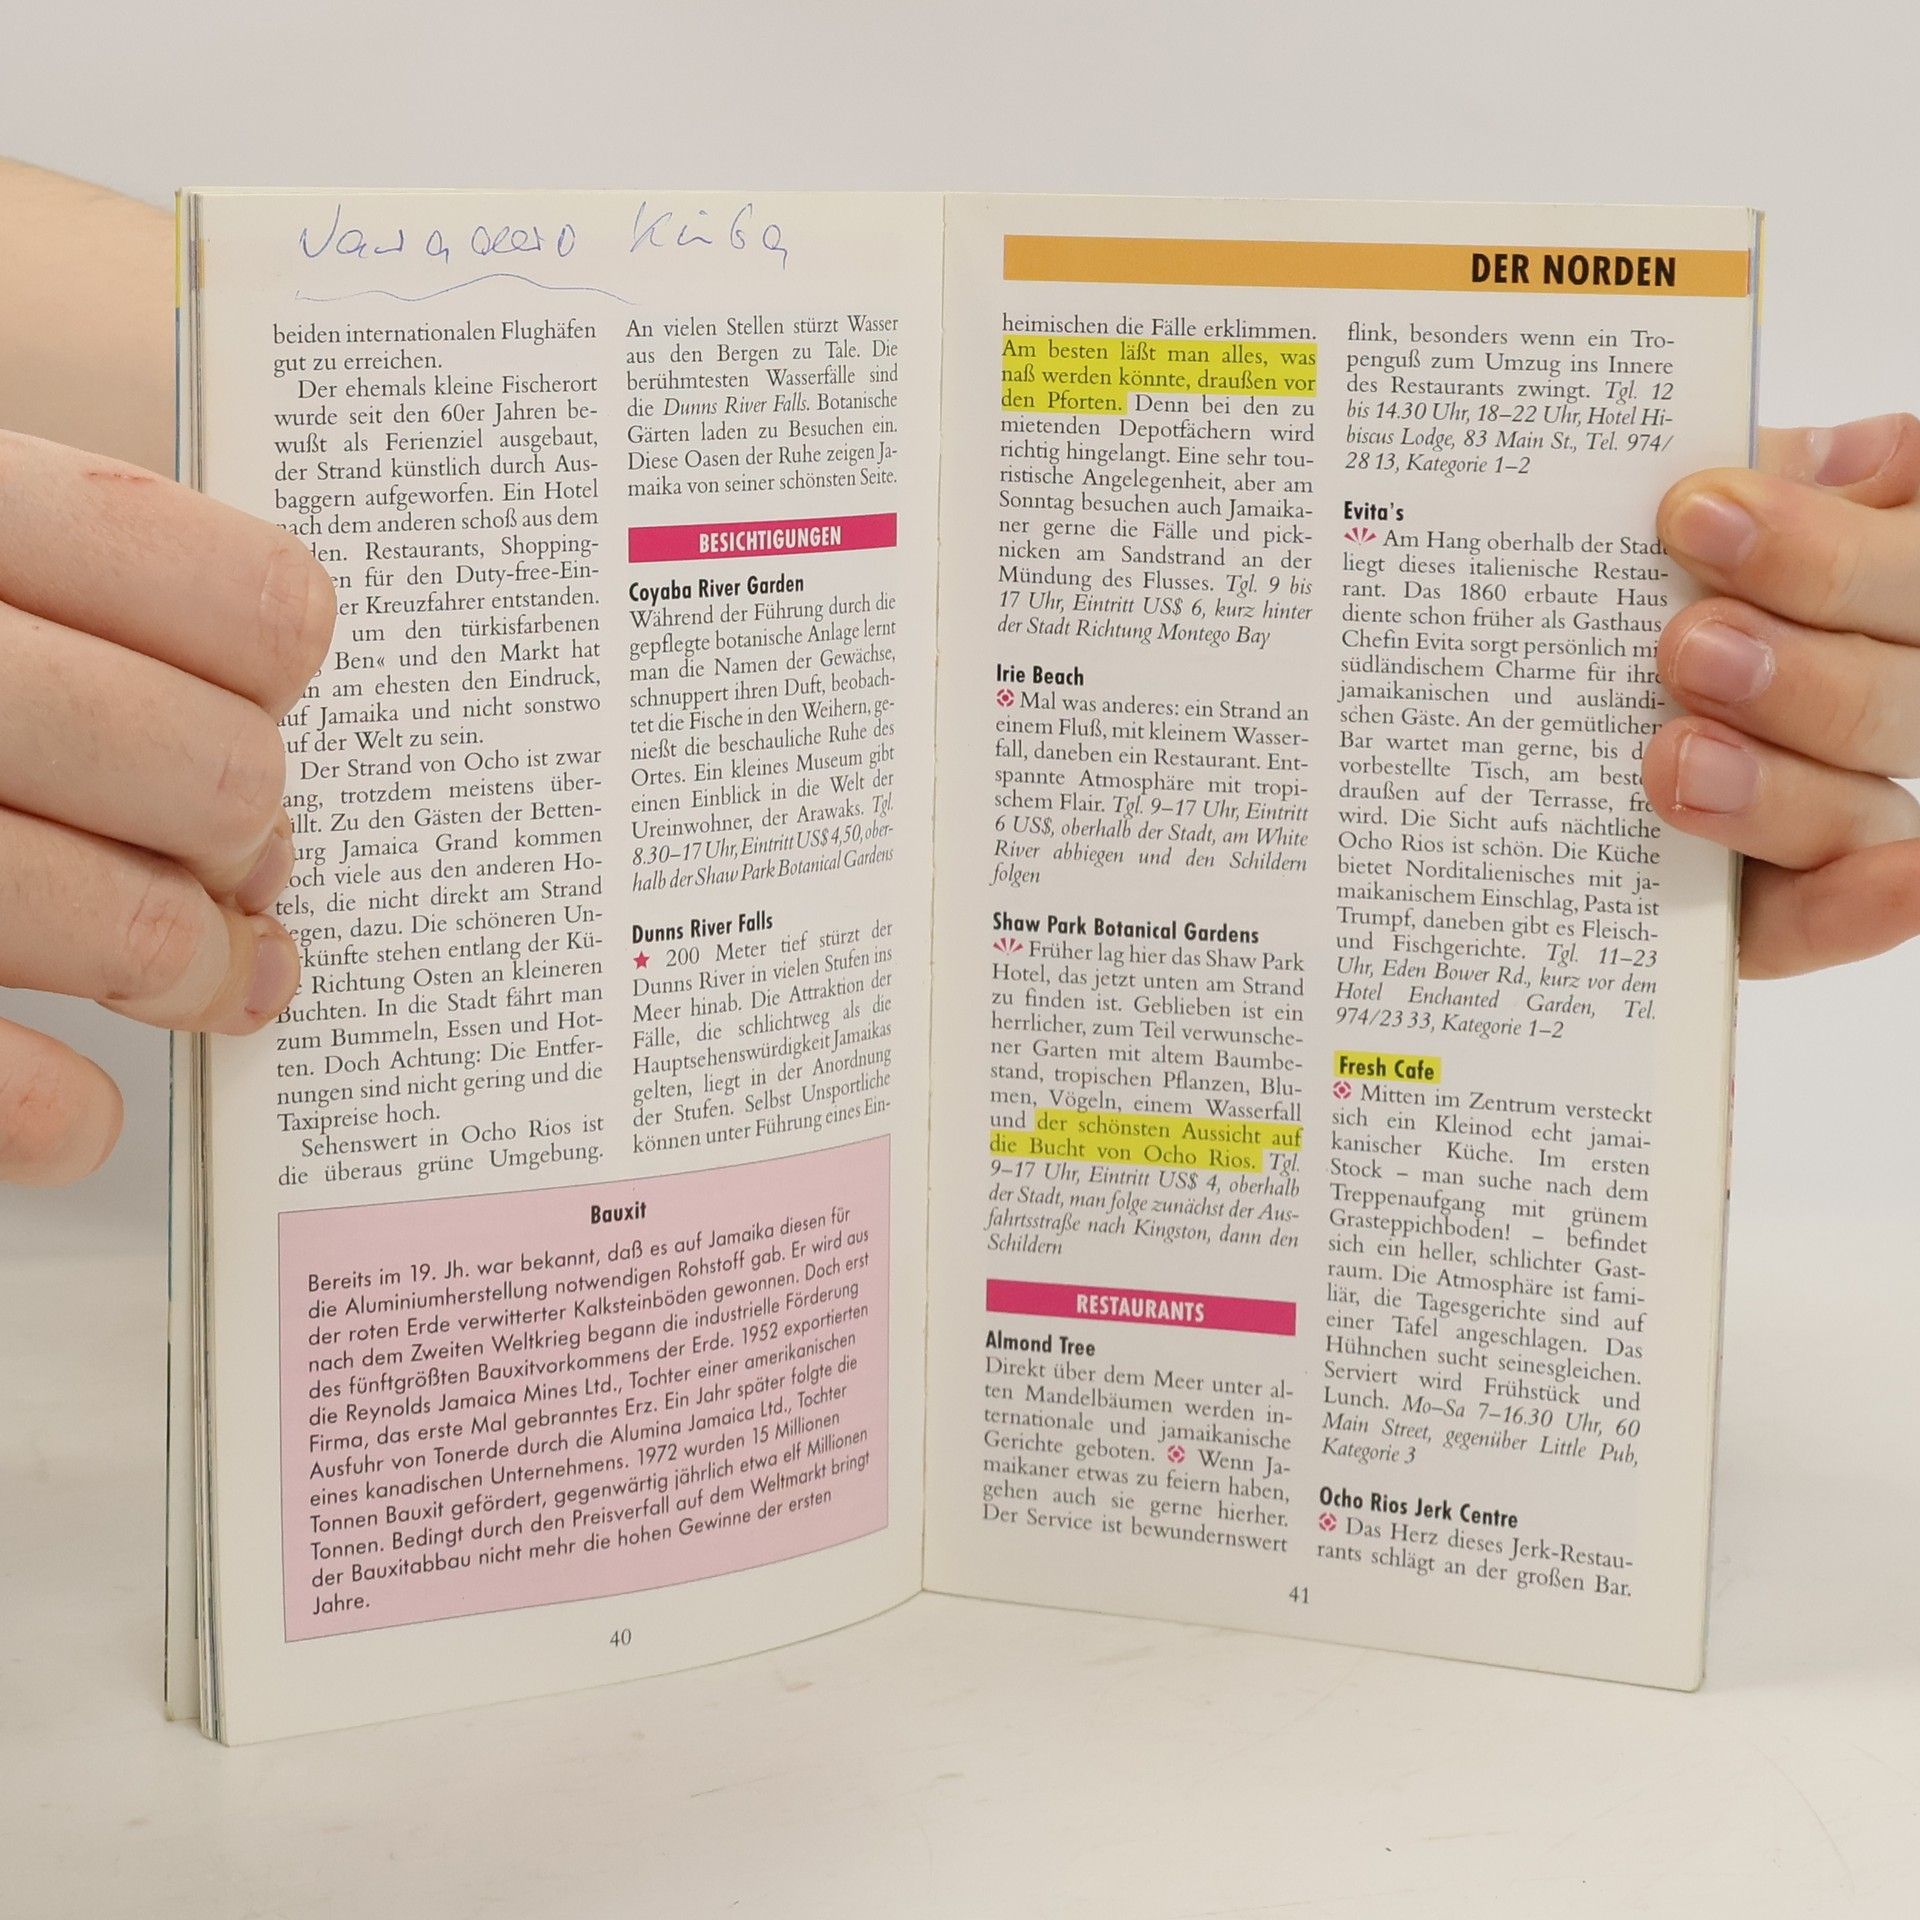 beiden internationalen Flughäfen
gut zu erreichen.
Der ehemals kleine Fischerort
wurde seit den 60er Jahren be-
wußt als Ferienziel ausgebaut,
der Strand künstlich durch Aus-
baggern aufgeworfen. Ein Hotel
nach dem anderen schoß aus dem
Restaurants, Shopping-
für den Duty-free-Ein-
Kreuzfahrer entstanden.
um den türkisfarbenen
Ben« und den Markt hat
am ehesten den Eindruck,
auf Jamaika und nicht sonstwo
auf der Welt zu sein.
Der Strand von Ocho ist zwar
trotzdem meistens über-
Zu den Gästen der Betten-
Jamaica Grand kommen
noch viele aus den anderen Ho-
tels, die nicht direkt am Strand
liegen, dazu. Die schöneren Un-
terkünfte stehen entlang der Kü-
Richtung Osten an kleineren
Buchten. In die Stadt fährt man
zum Bummeln, Essen und Hot-
ten. Doch Achtung: Die Entfer-
nungen sind nicht gering und die
Taxipreise hoch.
Sehenswert in Ocho Rios ist
die überaus grüne Umgebung.
An vielen Stellen stürzt Wasser
aus den Bergen zu Tale. Die
berühmtesten Wasserfälle sind
die Dunns River Falls. Botanische
Gärten laden zu Besuchen ein.
Diese Oasen der Ruhe zeigen Ja-
maika von seiner schönsten Seite.
BESICHTIGUNGEN
Coyaba River Garden
Während der Führung durch die
gepflegte botanische Anlage lernt
man die Namen der Gewächse,
schnuppert ihren Duft, beobach-
tet die Fische in den Weihern, ge-
nießt die beschauliche Ruhe des
Ortes. Ein kleines Museum gibt
einen Einblick in die Welt der
Ureinwohner, der Arawaks. Tgl.
8.30–17 Uhr, Eintritt US$ 4,50, ober-
halb der Shaw Park Botanical Gardens
Dunns River Falls
200 Meter tief stürzt der
Dunns River in vielen Stufen ins
Meer hinab. Die Attraktion der
Fälle, die schlichtweg als die
Hauptsehenswürdigkeit Jamaikas
gelten, liegt in der Anordnung
der Stufen. Selbst Unsportliche
können unter Führung eines Ein-
Bauxit
Bereits im 19. Jh. war bekannt, daß es auf Jamaika diesen für
die Aluminiumherstellung notwendigen Rohstoff gab. Er wird aus
der roten Erde verwitterter Kalksteinböden gewonnen. Doch erst
nach dem Zweiten Weltkrieg begann die industrielle Förderung
des fünftgrößten Bauxitvorkommens der Erde. 1952 exportierten
die Reynolds Jamaica Mines Ltd., Tochter einer amerikanischen
Firma, das erste Mal gebranntes Erz. Ein Jahr später folgte die
Ausfuhr von Tonerde durch die Alumina Jamaica Ltd., Tochter
eines kanadischen Unternehmens. 1972 wurden 15 Millionen
Tonnen Bauxit gefördert, gegenwärtig jährlich etwa elf Millionen
Tonnen. Bedingt durch den Preisverfall auf dem Weltmarkt bringt
der Bauxitabbau nicht mehr die hohen Gewinne der ersten
Jahre.
40
DER NORDEN
heimischen die Fälle erklimmen.
Am besten läßt man alles, was
naß werden könnte, draußen vor
den Pforten. Denn bei den zu
mietenden Depotfächern wird
richtig hingelangt. Eine sehr tou-
ristische Angelegenheit, aber am
Sonntag besuchen auch Jamaika-
ner gerne die Fälle und pick-
nicken am Sandstrand an der
Mündung des Flusses. Tgl. 9 bis
17 Uhr, Eintritt US$ 6, kurz hinter
der Stadt Richtung Montego Bay
Irie Beach
Mal was anderes: ein Strand an
einem Fluß, mit kleinem Wasser-
fall, daneben ein Restaurant. Ent-
spannte Atmosphäre mit tropi-
schem Flair. Tgl. 9–17 Uhr, Eintritt
6 US$, oberhalb der Stadt, am White
River abbiegen und den Schildern
folgen
Shaw Park Botanical Gardens
Früher lag hier das Shaw Park
Hotel, das jetzt unten am Strand
zu finden ist. Geblieben ist ein
herrlicher, zum Teil verwunsche-
ner Garten mit altem Baumbe-
stand, tropischen Pflanzen, Blu-
men, Vögeln, einem Wasserfall
und der schönsten Aussicht auf
die Bucht von Ocho Rios. Tgl.
9–17 Uhr, Eintritt US$ 4, oberhalb
der Stadt, man folge zunächst der Aus-
fahrtsstraße nach Kingston, dann den
Schildern
RESTAURANTS
Almond Tree
Direkt über dem Meer unter al-
ten Mandelbäumen werden in-
ternationale und jamaikanische
Gerichte geboten. Wenn Ja-
maikaner etwas zu feiern haben,
gehen auch sie gerne hierher.
Der Service ist bewundernswert
flink, besonders wenn ein Tro-
penguß zum Umzug ins Innere
des Restaurants zwingt. Tgl. 12
bis 14.30 Uhr, 18–22 Uhr, Hotel Hi-
biscus Lodge, 83 Main St., Tel. 974/
28 13, Kategorie 1–2
Evita's
Am Hang oberhalb der Stadt
liegt dieses italienische Restau-
rant. Das 1860 erbaute Haus
diente schon früher als Gasthaus.
Chefin Evita sorgt persönlich mit
südländischem Charme für ihre
jamaikanischen und ausländi-
schen Gäste. An der gemütlichen
Bar wartet man gerne, bis der
vorbestellte Tisch, am besten
draußen auf der Terrasse, frei
wird. Die Sicht aufs nächtliche
Ocho Rios ist schön. Die Küche
bietet Norditalienisches mit ja-
maikanischem Einschlag, Pasta ist
Trumpf, daneben gibt es Fleisch-
und Fischgerichte. Tgl. 11–23
Uhr, Eden Bower Rd., kurz vor dem
Hotel Enchanted Garden, Tel.
974/23 33, Kategorie 1–2
Fresh Cafe
Mitten im Zentrum versteckt
sich ein Kleinod echt jamai-
kanischer Küche. Im ersten
Stock – man suche nach dem
Treppenaufgang mit grünem
Grasteppichboden! – befindet
sich ein heller, schlichter Gast-
raum. Die Atmosphäre ist fami-
liär, die Tagesgerichte sind auf
einer Tafel angeschlagen. Das
Hühnchen sucht seinesgleichen.
Serviert wird Frühstück und
Lunch. Mo–Sa 7–16.30 Uhr, 60
Main Street, gegenüber Little Pub,
Kategorie 3
Ocho Rios Jerk Centre
Das Herz dieses Jerk-Restau-
rants schlägt an der großen Bar.
41